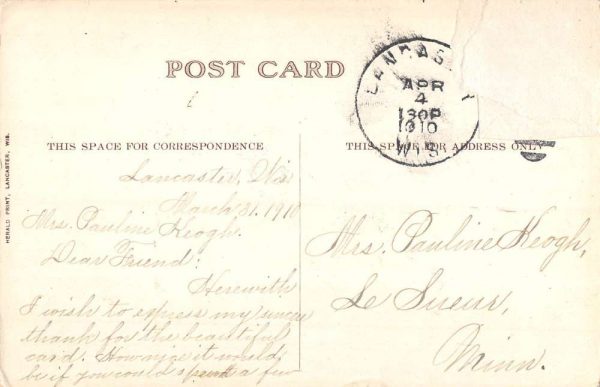 POST CARD
LANCASTER
APR
4
130P
1910
WIS.
THIS SPACE FOR CORRESPONDENCE
THIS SPACE FOR ADDRESS ONLY
HERALD PRINT, LANCASTER, WIS.
Lancaster, Wis
March 31, 1910
Mrs. Pauline Keogh.
Dear Friend:
Herewith
I wish to express my sincere
thank for the beautiful
card. How nice it would
be if you could spend a few
Mrs. Pauline Keogh,
Le Sueur,
Minn.